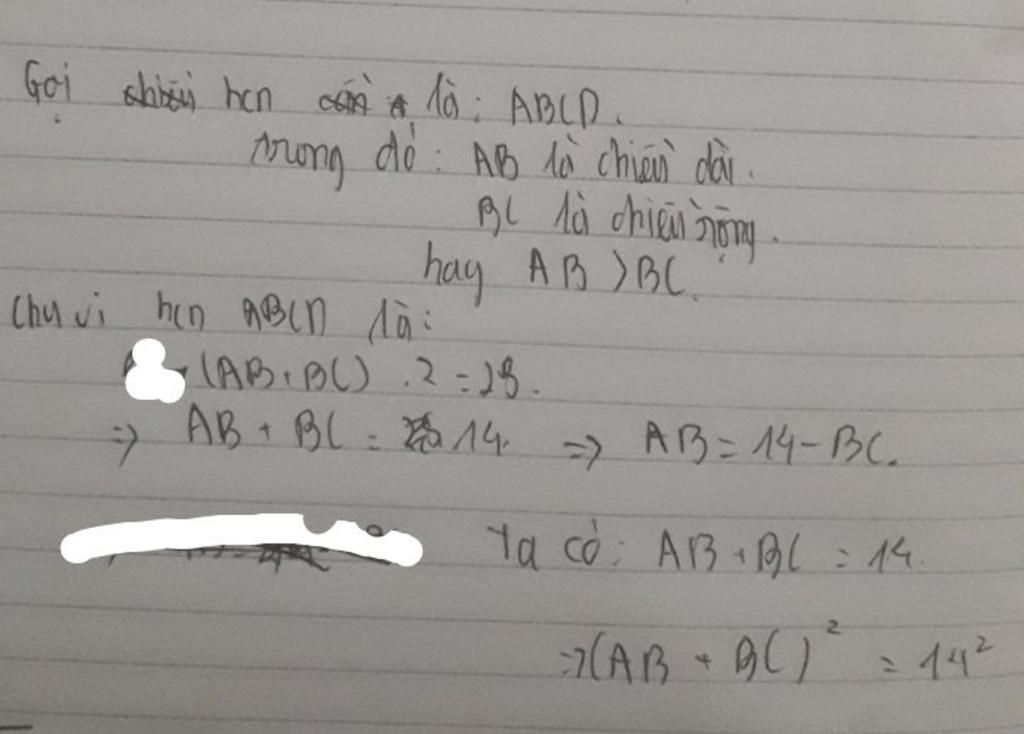 Gọi hcn là: ABCD.
trong đó: AB là chiều dài.
BC là chiều rộng.
hay AB > BC.
Chu vi hcn ABCD là:
(AB + BC) . 2 = 28.
=> AB + BC = 14. => AB = 14 - BC.
Ta có: AB + BC = 14.
=> (AB + BC)² = 14²